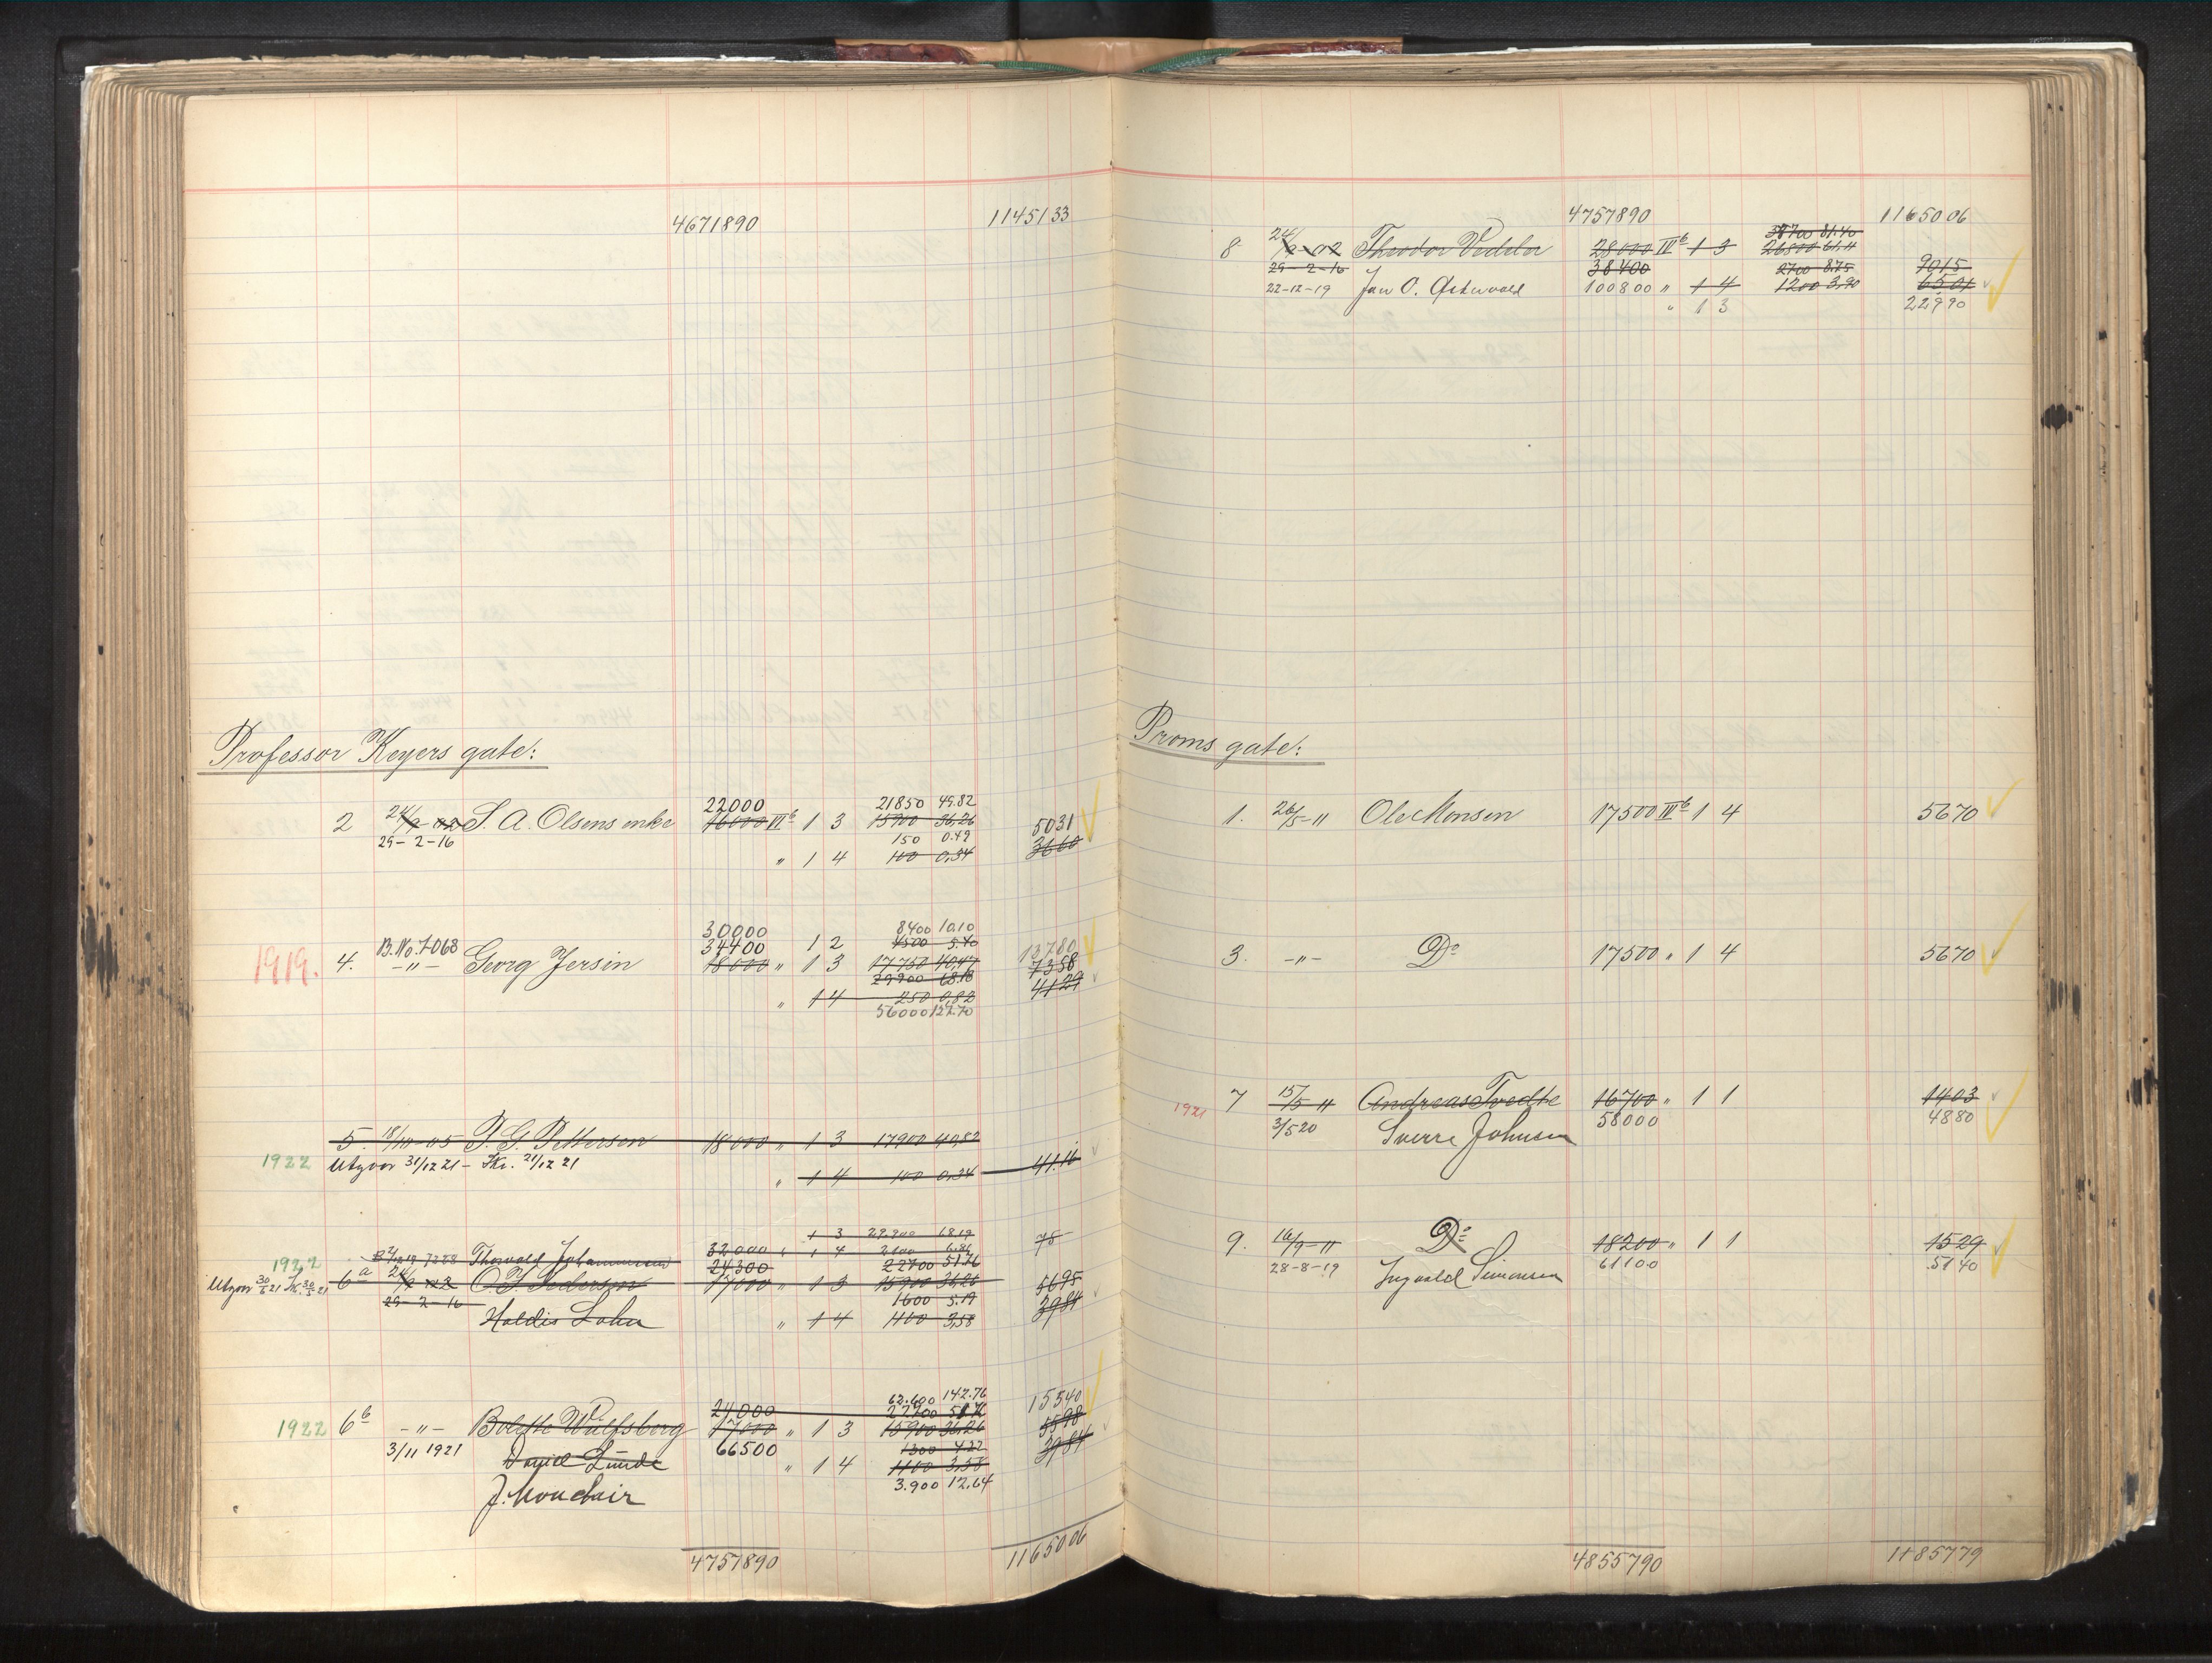 4671890 1145133
Professor Keyers gate:
21850 49.82
22000
2 24/9-02 S. A. Olsens enke 16000 III b 1 3 15900 36,26 5031
29-2-16 150 0.49 3660
" 1 4 100 0,34
30000 8400 10.10
B. No. 7068 34400 1 2 4500 5.40 13780
1919. 4. -"- Georg Jersin 18000 " 1 3 17750 40,47 7358
29900 68.18 4129
" 1 4 250 0,82
56000 127.70
5. 18/10-05 P. G. Pettersen 18000 " 1 3 17900 40,82
1922 Utgaar 31/12 21 - Skr. 21/12 21 41.16
" 1 4 100 0,34
1 3 29900 68.19 75
32000 " 1 4 2100 6.81
1922 Thorvald Johannessen 24300 22700 51.76
Utgaar 30/6 21 6a 24/9-02 O. J. Pedersen 17000 " 1 3 15900 36,26 5695
29-2-16 1600 5.19 3984
Haldis Lohn " 1 4 1100 3,58
62.600 142.76 15540
24000 5598
1922 6b -"- Bolette Wulfsberg 17000 " 1 3 15900 36,26
3/11 1921 66500 1300 4.22 3984
Daniel Lunde " 1 4 1100 3,58
J. Monclair 3.900 12,64
4757890 1165006
4757890 1165006
38700 81.40
8 24/9-02 Theodor Vedeler 28000 III b 1 3 26800 61,11
29-2-16 38400 2700 8.75 9015
22-12-19 Jan O. Ostervold 100800 " 1 4 1200 3,90 6501
" 1 3 22990
Proms gate:
1. 26/5-11 Ole Monsen 17500 III b 1 4 5670
3. -"- Do 17500 " 1 4 5670
1921 7 15/5-11 Andreas Tvedte 16700 " 1 1 1403
3/5 20 Sverre Johnsen 58000 4880
9. 16/9-11 Do 18200 " 1 1 1529
28-8-19 Ingvald Simonsen 61100 5140
4855790 1185779